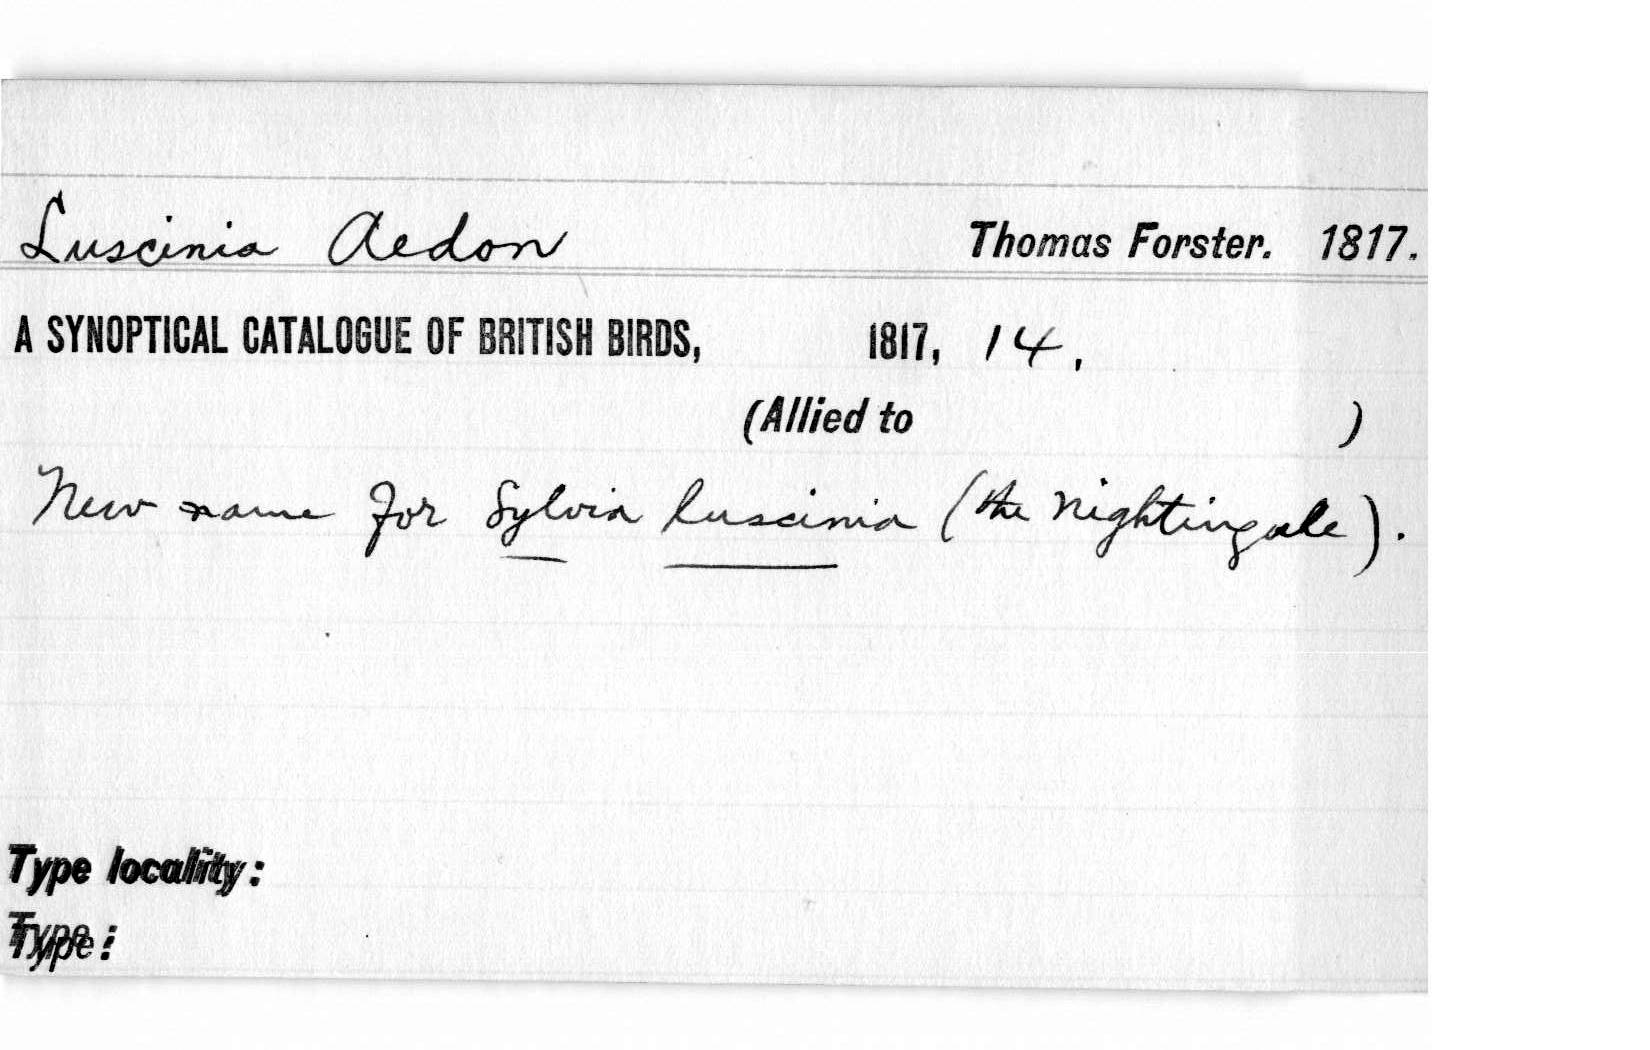 Luscinia Aedon Thomas Forster. 1817.
A SYNOPTICAL CATALOGUE OF BRITISH BIRDS, 1817, 14.
(Allied to )
New name for Sylvia luscinia (the nightingale).
Type locality:
Type: